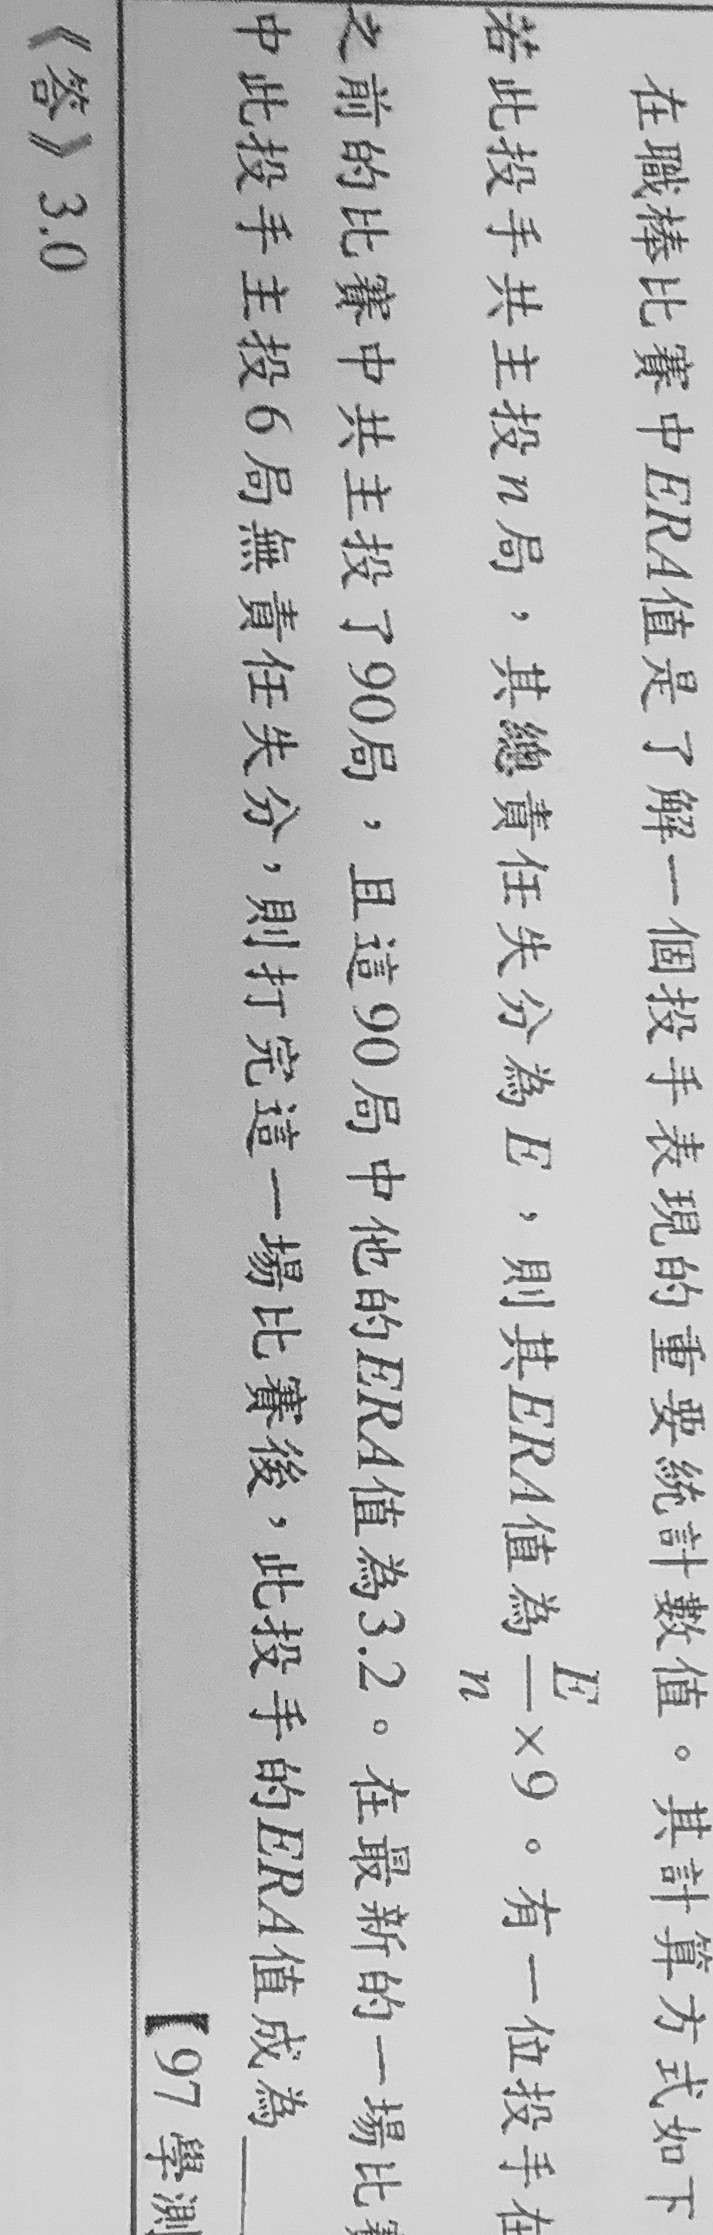 在職棒比賽中ERA值是了解一個投手表現的重要統計數值。其計算方式如下
若此投手共主投n局，其總責任失分為E，則其ERA值為E/n×9。有一位投手在
之前的比賽中共主投了90局，且這90局中他的ERA值為3.2。在最新的一場比賽
中此投手主投6局無責任失分，則打完這一場比賽後，此投手的ERA值成為____
【97 學測
《答》3.0